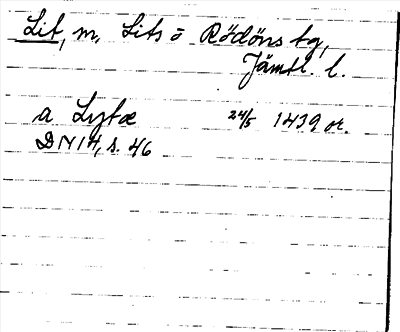 Lit, m, Lits ō Rödöns tg,
Jämtl. l.
a Lytæ 24/5 1439 or.
DN 14, s. 46